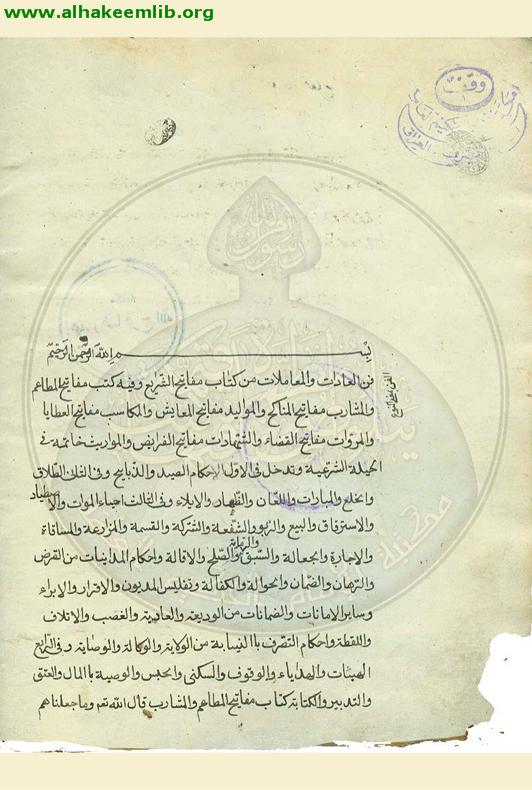 www.alhakeemlib.org
وقف
بسم الله الرحمن الرحيم
فن العادات والمعاملات من كتاب مفاتيح الشرايع وفيه كتب مفاتيح المطاعم
والمشارب مفاتيح المناكح والمواليد مفاتيح المعايش والمكاسب مفاتيح العطايا
والمروات مفاتيح القضاء والشهادات مفاتيح الفرايض والمواريث خاتمة في
الحيلة الشرعية وتدخل في الاول احكام الصيد والذبايح وفي الثاني الطلاق
والخلع والمبارات واللعان والظهار والايلاء وفي الثالث احياء الموات والاصطياد
والاسترقاق والبيع والربو والشفعة والشركة والقسمة والمزارعة والمساقاة
والاجارة والجعالة والسبق والرماية والصلح والاقالة واحكام المداينات من القرض
والرهان والضمان والحوالة والكفالة وتفليس المديون والاقرار والابراء
وساير الامانات والضمانات من الوديعة والعارية والغصب والاتلاف
واللقطة واحكام التصرف بالنيابة من الولاية والوكالة والوصاية وفي الرابع
الهبات والهدايا والوقوف والسكنى والحبس والوصية بالمال والعتق
والتدبير والكتابة كتاب مفاتيح المطاعم والمشارب قال الله تعم وما جعلناهم